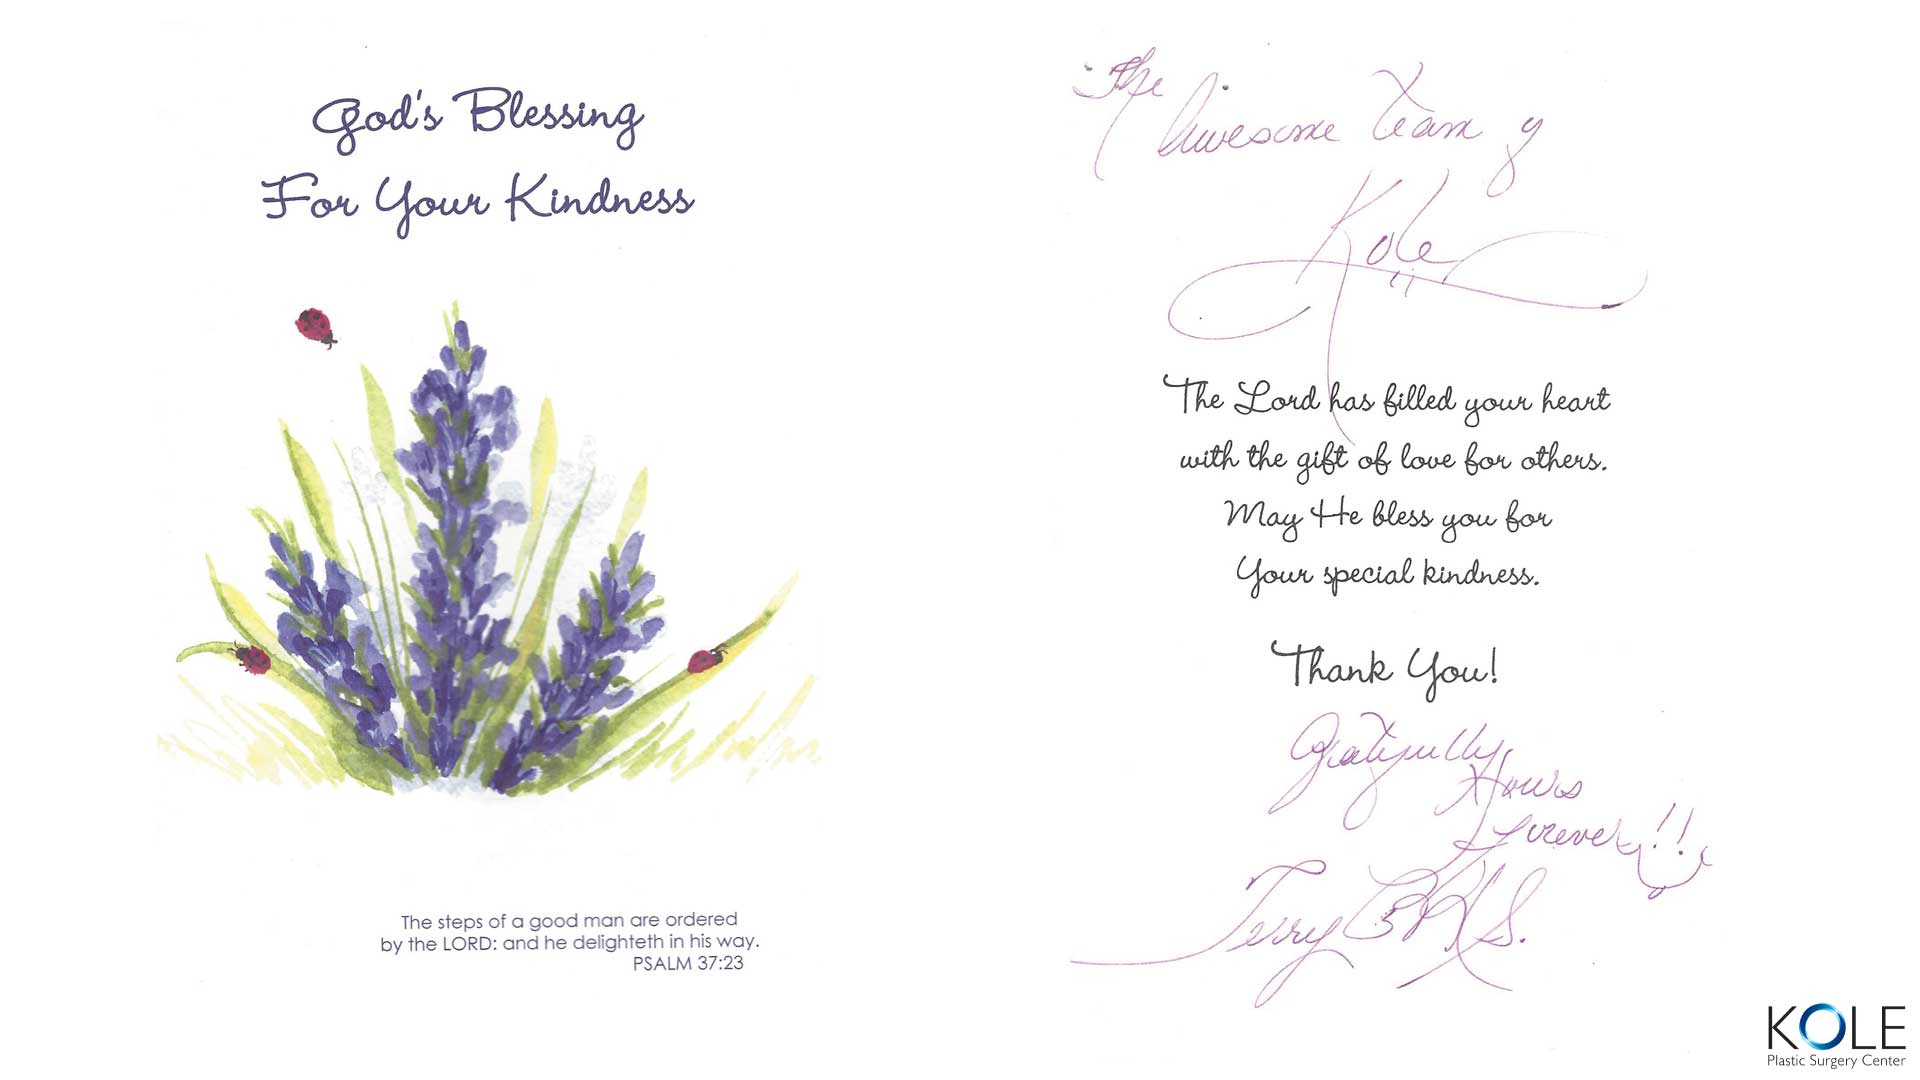 God's Blessing
For Your Kindness
The steps of a good man are ordered
by the LORD: and he delighteth in his way.
PSALM 37:23
The
Awesome Team of
Kole
The Lord has filled your heart
with the gift of love for others.
May He bless you for
Your special kindness.
Thank You!
Gratefully
Yours
Forever!!
Terry
S.
KOLE
Plastic Surgery Center